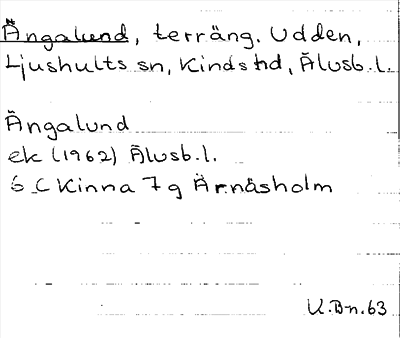 Ängalund, terräng. Udden,
Ljushults sn, Kinds hd, Älvsb.l.
Ängalund
ek (1962) Älvsb.l.
6 C Kinna 7 g Ärnåsholm
U.B-n.63